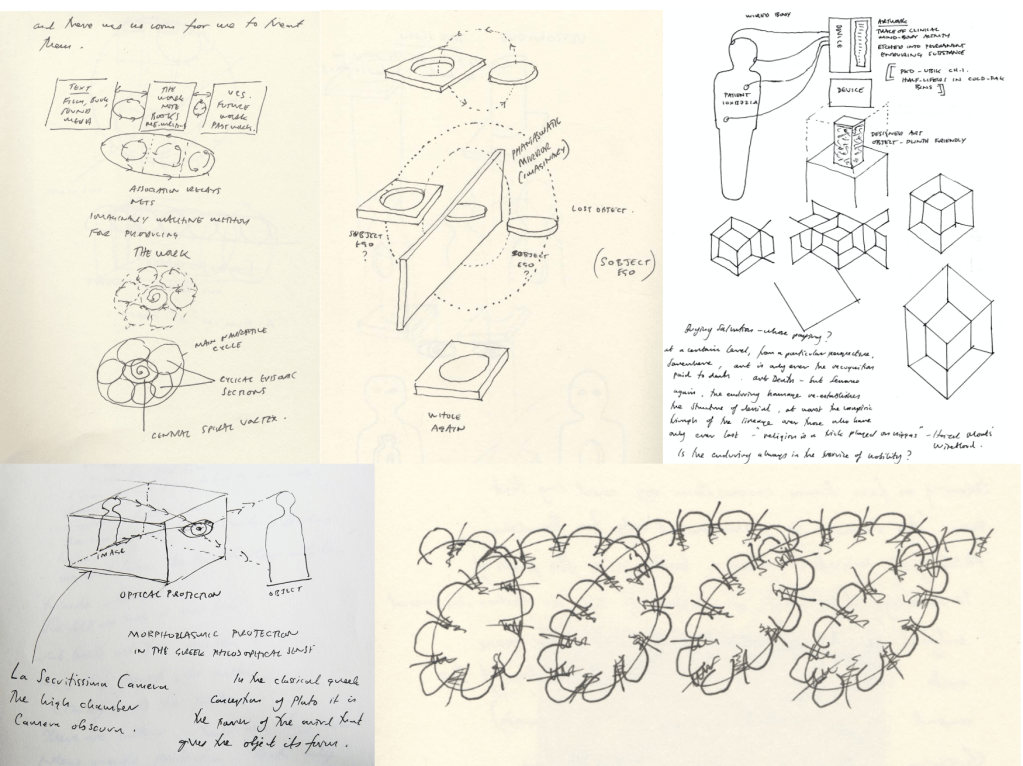 and for me to
them.
TEXT
FILM, BOOK,
FOUND
MEDIA
THE
WORK
NOTE
BOOK'S
V.C.S.
FUTURE
WORK
PAST WORK.
ASSOCIATION RELAYS
NETS
IMAGINARY MACHINE METHOD
FOR PRODUCING
THE WORK
MAIN NARRATIVE
CYCLE
CYCLICAL EPISODIC
SECTIONS
CENTRAL SPIRAL VORTEX.
PHANTASMATIC
MIRROR
(IMAGINARY)
LOST OBJECT.
SUBJECT
EGO
?
SOBJECT
EGO
?
(SOBJECT
EGO)
WHOLE
AGAIN
WIRED BODY
DEVICE
ARTWORK
TRACE OF CLINICAL
MIND-BODY ACTIVITY
ETCHED INTO PERMANENT
ENDURING SUBSTANCE
[PKD-UBIK CH.1.
HALF-LIFERS IN COLD-PAK
BINS]
PATIENT
DEVICE
DESIGNED ART
OBJECT - PLINTH FRIENDLY
Buying Salvation - whose paying?
at a certain level, from a particular perspective.
Somewhere, art is only ever the recognition
paid to death. art Death - but
again, the enduring homage re-establishes
the structure of denial, at worst the
triumph of the lineage over those who have
only ever lost - "religion is a trick played on" -
Is the enduring always in the service of nobility?
IMAGE
OPTICAL PROJECTION
OBJECT
MORPHOPLASMIC PROJECTION
IN THE GREEK PHILOSOPHICAL SENSE
La Secritissima Camera
The high chamber
Camera obscura.
In the classical greek
conception of Pluto it is
the power of the mind that
gives the object its form.